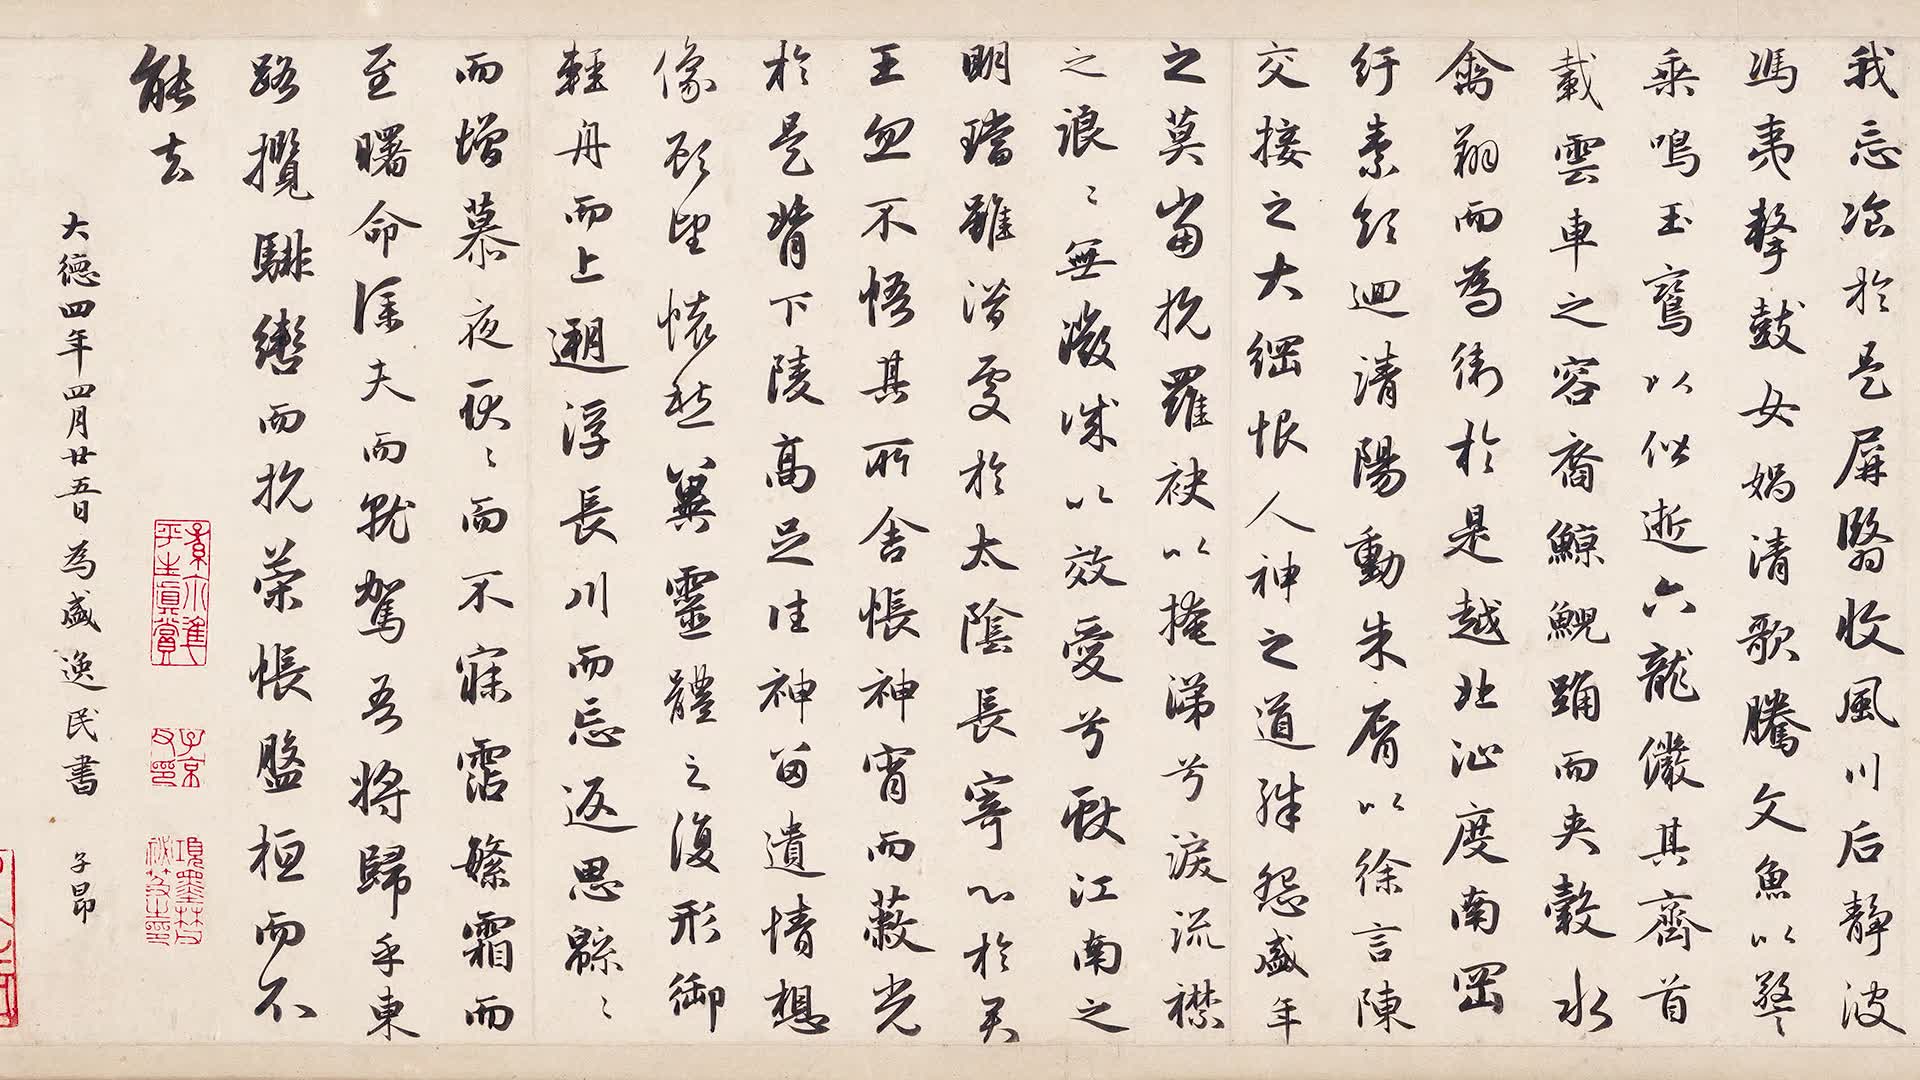 我忘飡於是屏翳收風川后靜波
馮夷擊鼓女媧清歌騰文魚以警
乘鳴玉鸞以偕逝六龍儼其齊首
載雲車之容裔鯨鯢踊而夾轂水
禽翔而為衛於是越北沚度南岡
紆素領迴清陽動朱脣以徐言陳
交接之大綱恨人神之道殊怨盛年
之莫當抗羅袂以掩涕兮淚流襟
之浪〻無微誠以效愛兮獻江南之
明璫雖潛處於太陰長寄心於君
王忽不悟其所舍悵神宵而蔽光
於是背下陵高足往神留遺情想
像顧望懷愁冀靈體之復形御
輕舟而上遡浮長川而忘返思緜〻
而增慕夜耿〻而不寐霑繁霜而
至曙命僕夫而就駕吾將歸乎東
路攬騑轡而抗策悵盤桓而不
能去
大德四年四月廿五日為盛逸民書 子昂
平生真賞
子京父印
項墨林父祕笈之印